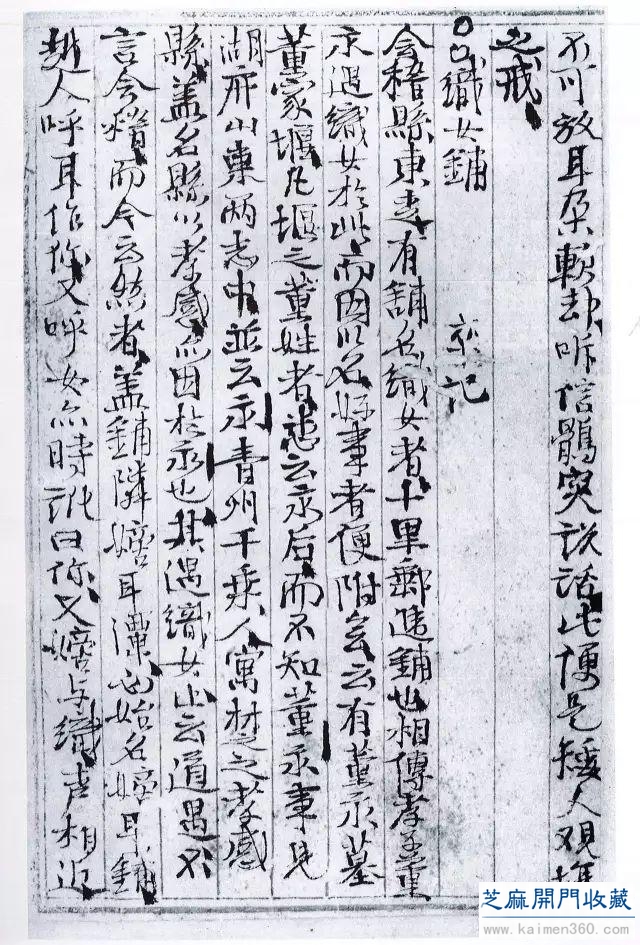 不可放耳朵軟却听信鶻突說話此便是矮人观
之戒
〇〇織女鋪 記
会稽縣東有鋪名織女者十里郵遞鋪也相傳孝子董
永遇織女於此而因以名好事者便附会云有董永墓
董家堰凡堰之董姓者悉云永后而不知董永事見
湖山東兩志中並云永青州千乘人寓楚之孝感
縣盖名縣以孝感亦因於永也其遇織女止云道遇不
言会稽而今云然者盖鋪隣耳潭也始名耳鋪
越人呼耳作你又呼女亦時訛曰你又与織声相近
芝麻開門收藏
www.kaimen360.com